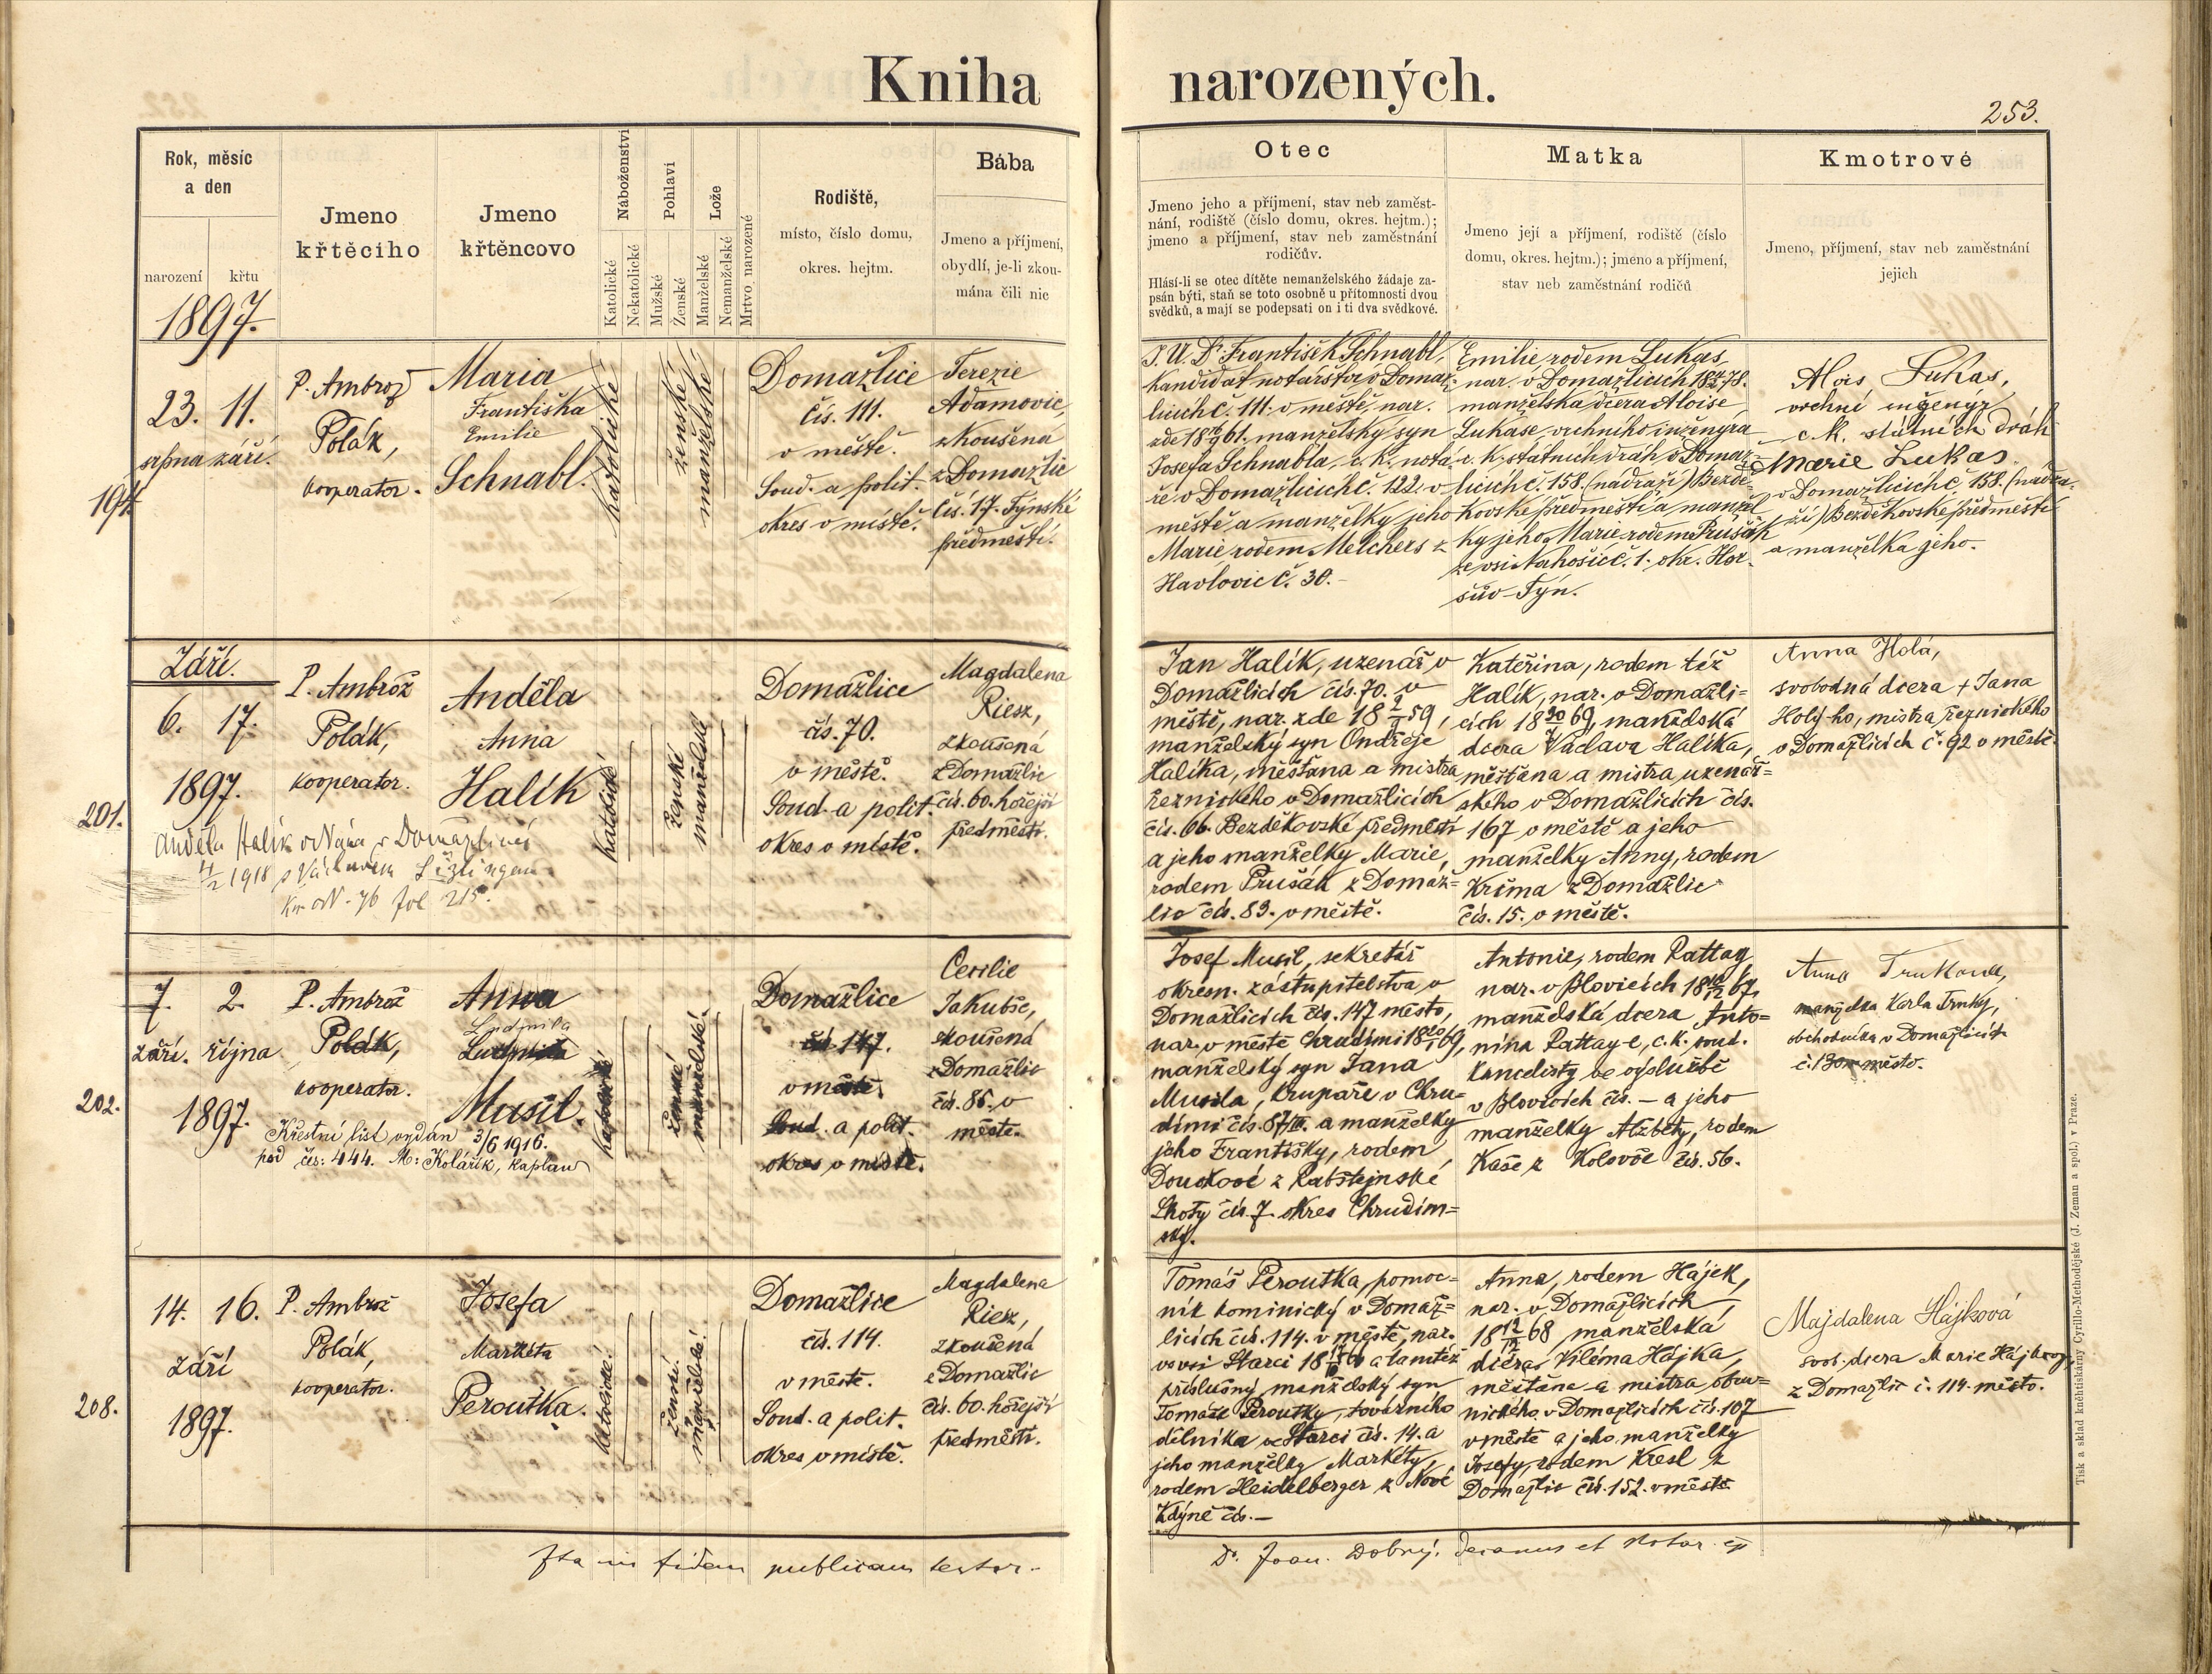 Kniha narozených.
253.
Rok, měsíc
a den
narození
křtu
1897.
Jmeno
křtěcího
Jmeno
křtěncovo
Náboženství
Katolické
Nekatolické
Pohlaví
Mužské
Ženské
Lože
Manželské
Nemanželské
Mrtvo narozené
Rodiště,
místo, číslo domu,
okres. hejtm.
Bába
Jmeno a příjmení,
obydlí, je-li zkou-
mána čili nic
Otec
Jmeno jeho a příjmení, stav neb zaměst-
nání, rodiště (číslo domu, okres. hejtm.);
jmeno a příjmení, stav neb zaměstnání
rodičův.
Hlásí-li se otec dítěte nemanželského žádaje za-
psán býti, staň se toto osobně u přítomnosti dvou
svědků, a mají se podepsati on i ti dva svědkové.
Matka
Jmeno její a příjmení, rodiště (číslo
domu, okres. hejtm.); jmeno a příjmení,
stav neb zaměstnání rodičů
Kmotrové
Jmeno, příjmení, stav neb zaměstnání
jejich
23. 11.
srpna září.
P. Ambrož
Polák,
kooperator.
Maria
Františka
Emilie
Schnabl.
katolické
ženské
manželské
Domažlice
čís. 111.
v městě.
Soud. a polit.
okres v místě.
Terezie
Adamovic,
zkoušená
z Domažlic
čís. 17. Týnské
předměstí.
J. U. Dr. František Schnabl,
kandidat notářství v Domaž-
licích č. 111. v městě, nar.
manželský syn
Josefa Schnabla, c. k. notá-
ře v Domažlicích č. 122. v
městě a manželky jeho
Marie, rodem Melchers z
Havlovic č. 30.
Emilie, rodem Lukas,
nar. v Domažlicích
manželská dcera Aloise
Lukáše, vrchního inženýra
c. k. státních drah v Domaž-
licích č. 158. (nádraží) Bezdě-
kovské předměstí a manžel-
ky jeho Marie rodem Průšák
ze vsi Nahošic č. 1. okr. Hor-
šův-Týn.
Alois Lukas,
vrchní inženýr
c. k. státních drah
Marie Lukas
v Domažlicích č. 158. (nádra-
ží) Bezděkovské předměstí
a manželka jeho.
Září.
6. 17.
1897.
201.
P. Ambrož
Polák,
kooperator.
Anděla
Anna
Halík
katolické
ženské
manželské
Domažlice
čís. 70.
v městě.
Soud. a polit.
okres v místě.
Magdalena
Riesz,
zkoušená
z Domažlic
čís. 60. hořejší
předměstí.
Anděla Halík oddána v Domažlicích
1918 s Václavem
fol 215.
Jan Halík, uzenář v
Domažlicích čís. 70. v
městě, nar. zde 18 2/1 59,
manželský syn Ondřeje
Halíka, měšťana a mistra
řeznického v Domažlicích
čís. 66. Bezděkovské předměstí
a jeho manželky Marie,
rodem Prušák z Domaž-
lic čís. 83. v městě.
Kateřina, rodem též
Halík, nar. v Domažli-
cích manželská
dcera Václava Halíka,
měšťana a mistra uzenář-
ského v Domažlicích čís.
167 v městě a jeho
manželky Anny, rodem
Křima z Domažlic
čís. 15. v městě.
Anna Holá,
svobodná dcera + Jana
Holý-ho, mistra řeznického
v Domažlicích č. 92 v městě.
7. 2.
září. října
1897.
202.
P. Ambrož
Polák,
kooperator.
Anna
Ludmila
Ludmila
Musil.
Křestní list vydán 3/6 1916.
pod čís: 444. M: Kolářík, kaplan
katolické
ženské
manželské.
Domažlice
čís. 147.
v městě.
Soud. a polit.
okres v místě.
Cecilie
Jakubše,
zkoušená
z Domažlic
čís. 85. v
městě.
Josef Musil, sekretář
okresn. zástupitelstva v
Domažlicích čís. 147 město,
nar. v městě Chrudimi
manželský syn Jana
Musila, krupaře v Chru-
dimi čís. 87/III. a manželky
jeho Františky, rodem
Douckové z Rabštejnské
Lhoty čís. 7. okres Chrudim-
ský.
Antonie, rodem Rattay
nar. v Blovicích
manželská dcera Anto-
nína Rattaye, c. k. soud.
kancelisty ve výslužbě
v Blovicích čís. — a jeho
manželky Alžběty, rodem
Kaše z Kolovče čís. 56.
Anna Trnkova,
manželka Karla Trnky,
obchodníka v Domažlicích
č. 130 město.
14. 16.
září
1897.
208.
P. Ambrož
Polák,
kooperator.
Josefa
Markéta
Peroutka.
katolické.
ženské.
manželské.
Domažlice
čís. 114.
v městě.
Soud. a polit.
okres v místě.
Magdalena
Riesz,
zkoušená
z Domažlic
čís. 60. hořejší
předměstí.
Tomáš Peroutka, pomoc-
ník kominický v Domaž-
licích čís. 114. v městě, nar.
ve vsi Starci a tamtéž
příslušný, manželský syn
Tomáše Peroutky, továrního
dělníka ve Starci čís. 14. a
jeho manželky Markéty,
rodem Heidelberger z Nové
Kdyně čís. —
Anna, rodem Hájek,
nar. v Domažlicích
18 12/12 68 manželská
dcera Viléma Hájka,
měšťana a mistra obuv-
nického v Domažlicích čís. 107
v městě a jeho manželky
Josefy, rodem Kresl z
Domažlic čís. 152. v městě
Majdalena Hájková
svob. dcera Marie Hájkové
z Domažlic č. 114. město.
Ita in fidem publicam testor.
Dr. Joan. Dobrý, decanus et notar. ep
Tisk a sklad knihtiskárny Cyrillo-Methodějské (J. Zeman a spol.) v Praze.